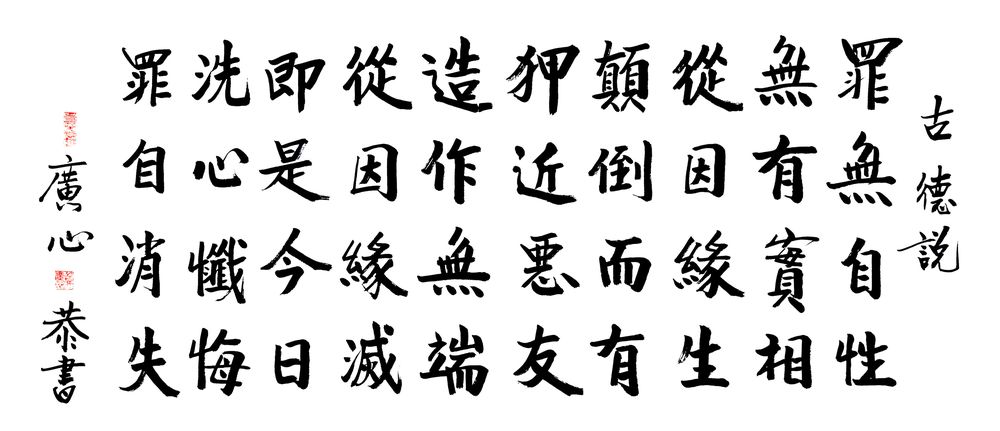 古德説
罪無自性
無有實相
從因緣生
顛倒而有
狎近惡友
造作無端
從因緣滅
即是今日
洗心懺悔
罪自消失
廣心恭書